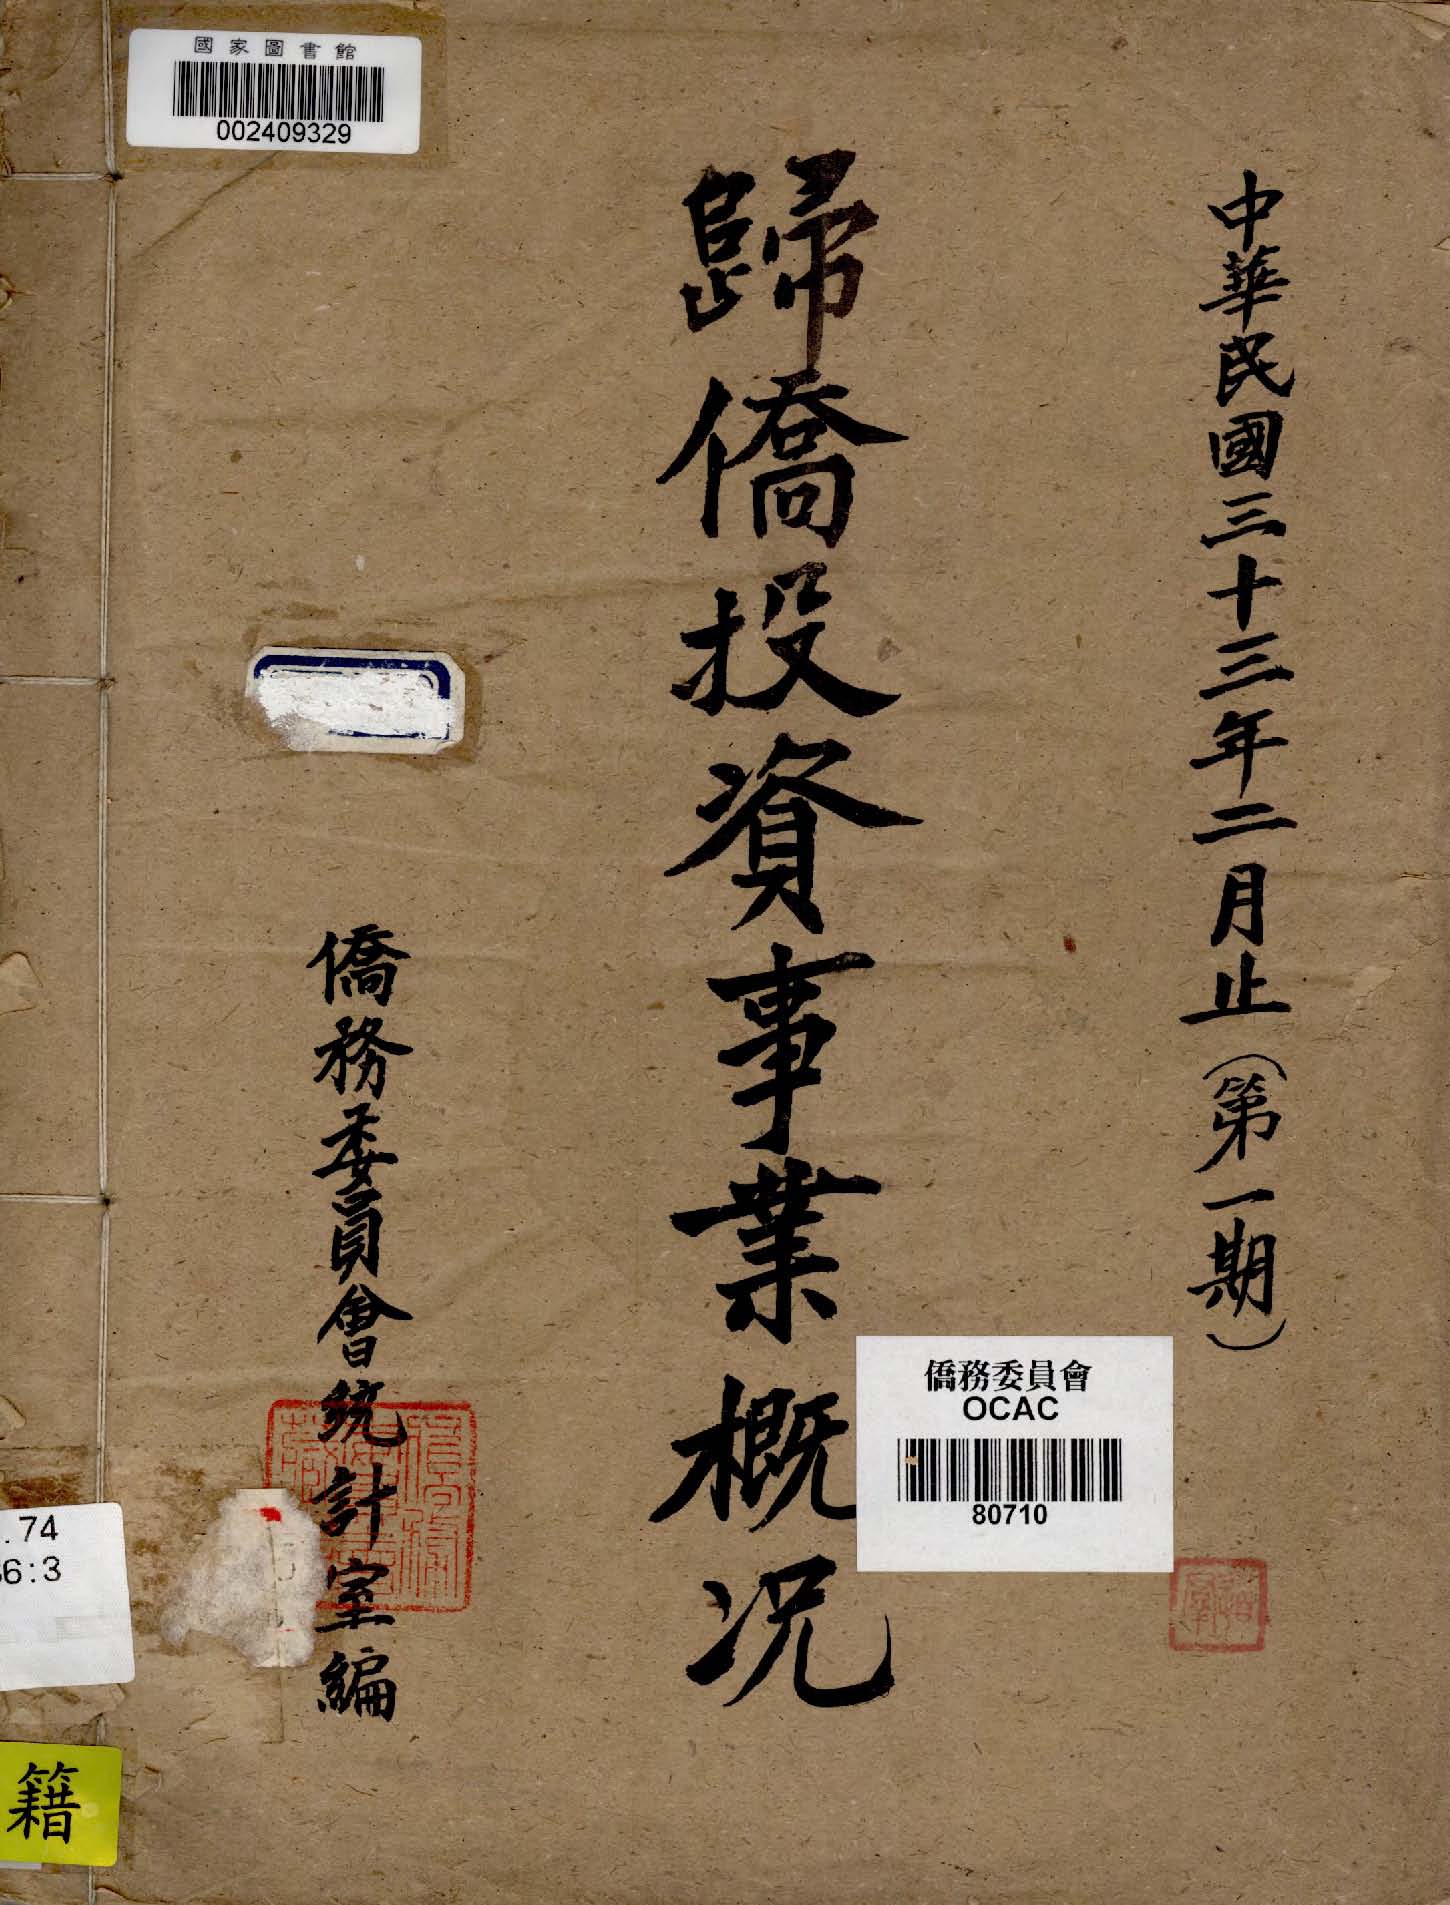 國家圖書館
002409329
中華民國三十三年二月止(第一期)
歸僑投資事業概況
僑務委員會統計室編
僑務委員會
OCAC
80710
.74
6:3
籍